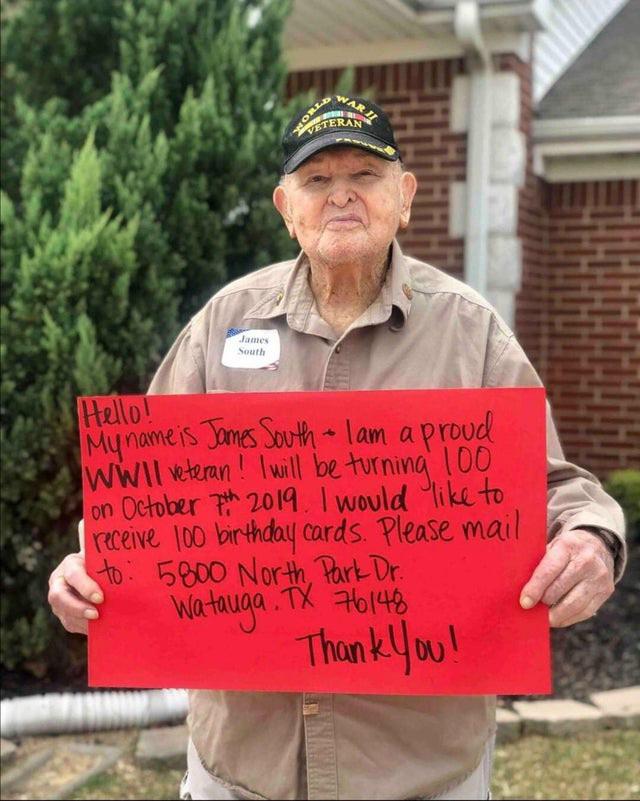 WORLD WAR II
VETERAN
James
South
Hello!
My name is James South + I am a proud
WWII veteran! I will be turning 100
on October 7th 2019. I would like to
receive 100 birthday cards. Please mail
to: 5800 North Park Dr.
Watauga, TX 76148
Thank You!